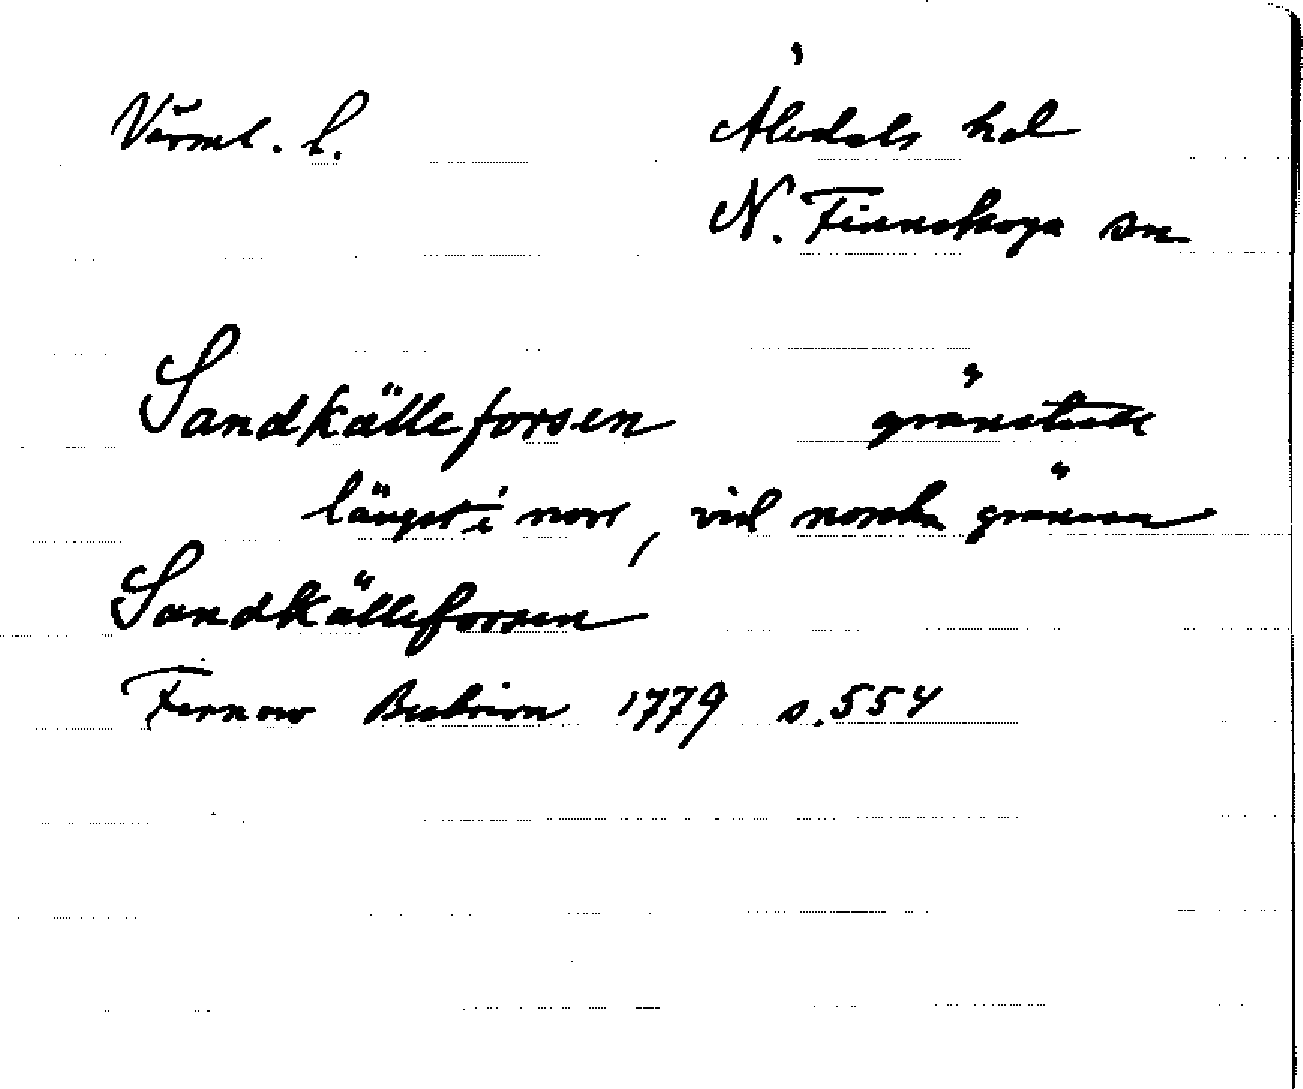 Värml. l.
Älvdals hd
N. Finnskoga sn
Sandkälleforsen
längst i norr, vid norska gränsen
Sandkälleforsen
Fernow Beskrivn 1779 s. 554